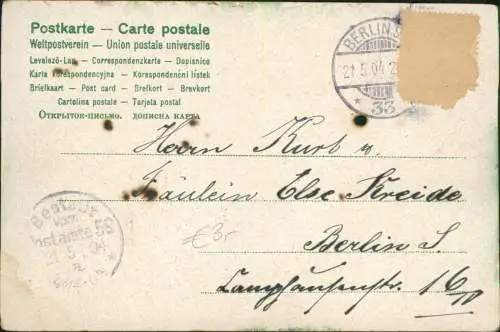 Postkarte — Carte postale
Weltpostverein — Union postale universelle
Levelező-Lap — Correspondenzkarte — Dopisnice
Karta korespondencyjna — Korespondenční lístek
Briefkaart — Post card — Brefkort — Brevkort
Cartolina postale — Tarjeta postal
Открытое-письмо. дописна карта
BERLIN S
21.5.04.2
* 33
Herrn Kurt u.
Fräulein Else Kreide
Bestellt
vom
Postamte 59
21.5.04
€3,-
Berlin S.